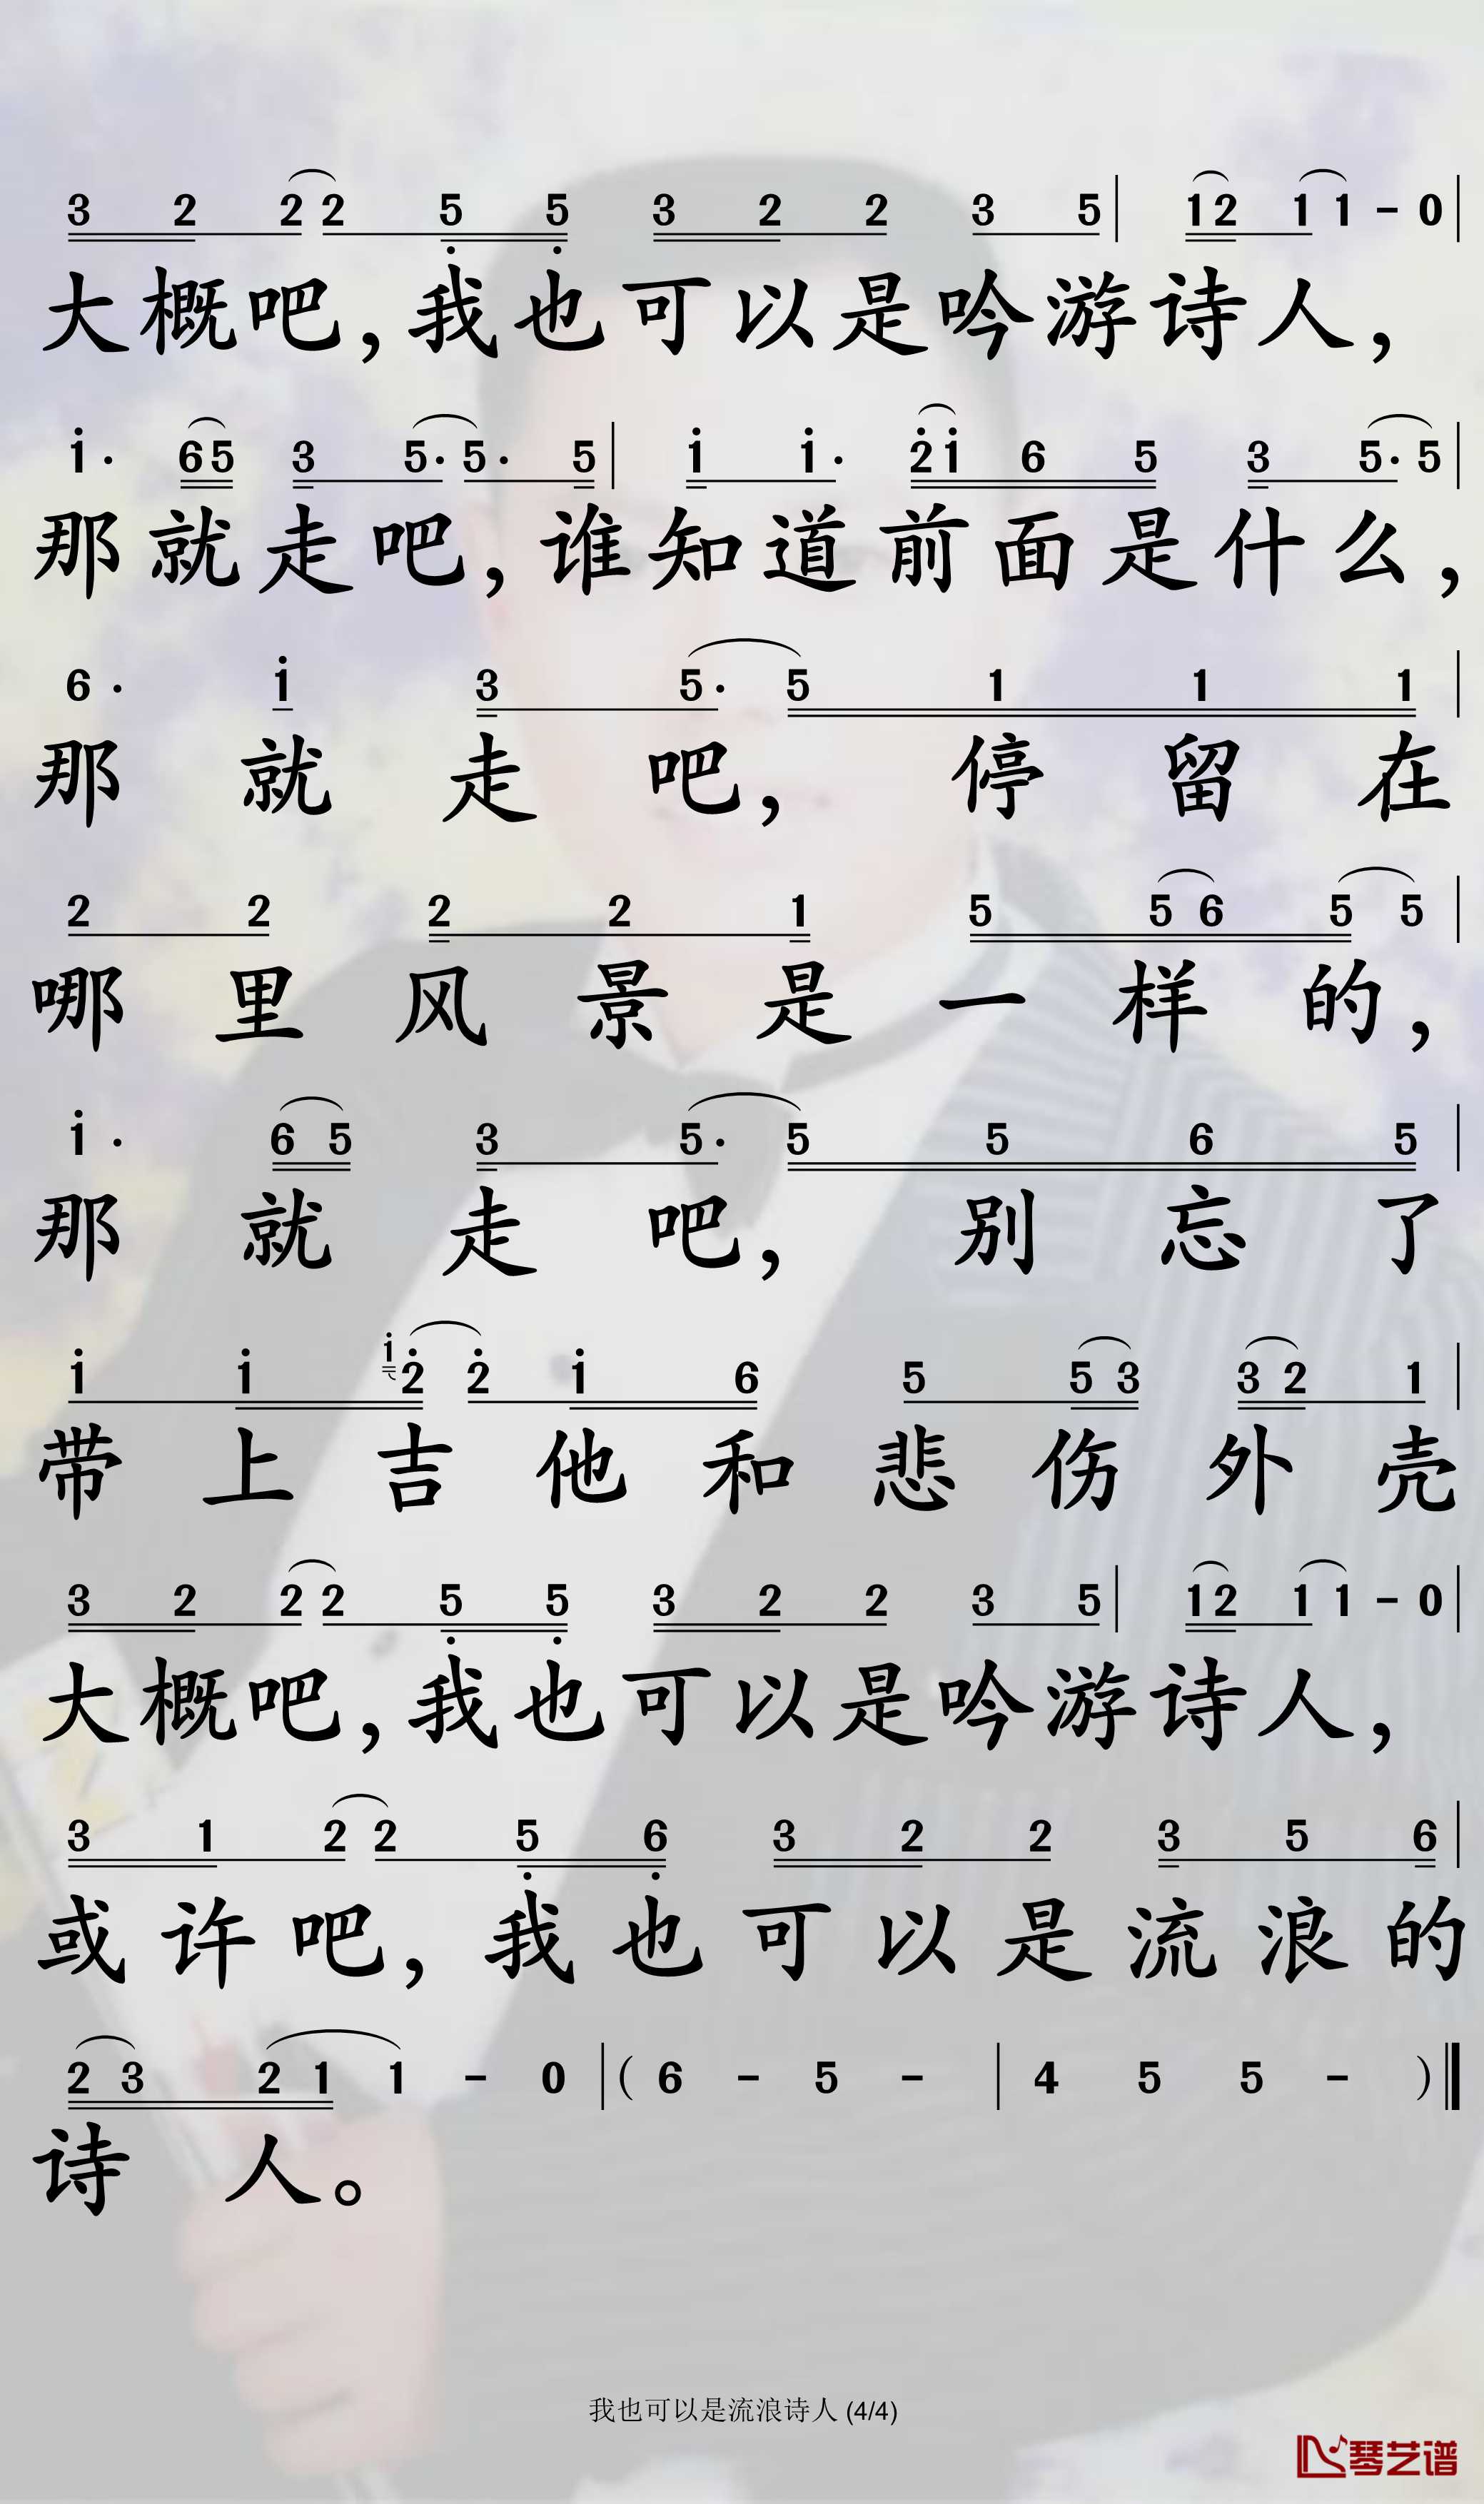 3 2 2 2 5 5 3 2 2 3 5 | 1 2 1 1 - 0 |
大概吧,我也可以是吟游诗人,
1· 6 5 3 5· 5· 5 | 1 1· 2 1 6 5 3 5· 5 |
那就走吧,谁知道前面是什么,
6· 1 3 5· 5 1 1 1 |
那就走吧,停留在
2 2 2 2 1 5 5 6 5 5 |
哪里风景是一样的,
1· 6 5 3 5· 5 5 6 5 |
那就走吧,别忘了
1 1 1 2 2 1 6 5 5 3 3 2 1 |
带上吉他和悲伤外壳
3 2 2 2 5 5 3 2 2 3 5 | 1 2 1 1 - 0 |
大概吧,我也可以是吟游诗人,
3 1 2 2 5 6 3 2 2 3 5 6 |
或许吧,我也可以是流浪的
2 3 2 1 1 - 0 | ( 6 - 5 - | 4 5 5 - ) ‖
诗人。
我也可以是流浪诗人 (4/4)
琴艺谱